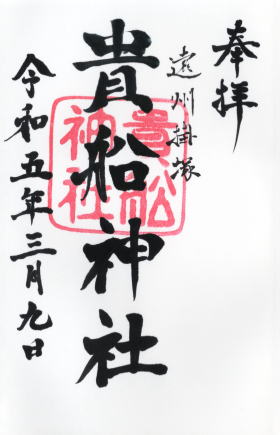 奉拝
遠州掛塚
貴船神社
貴船
神社
令和五年三月九日